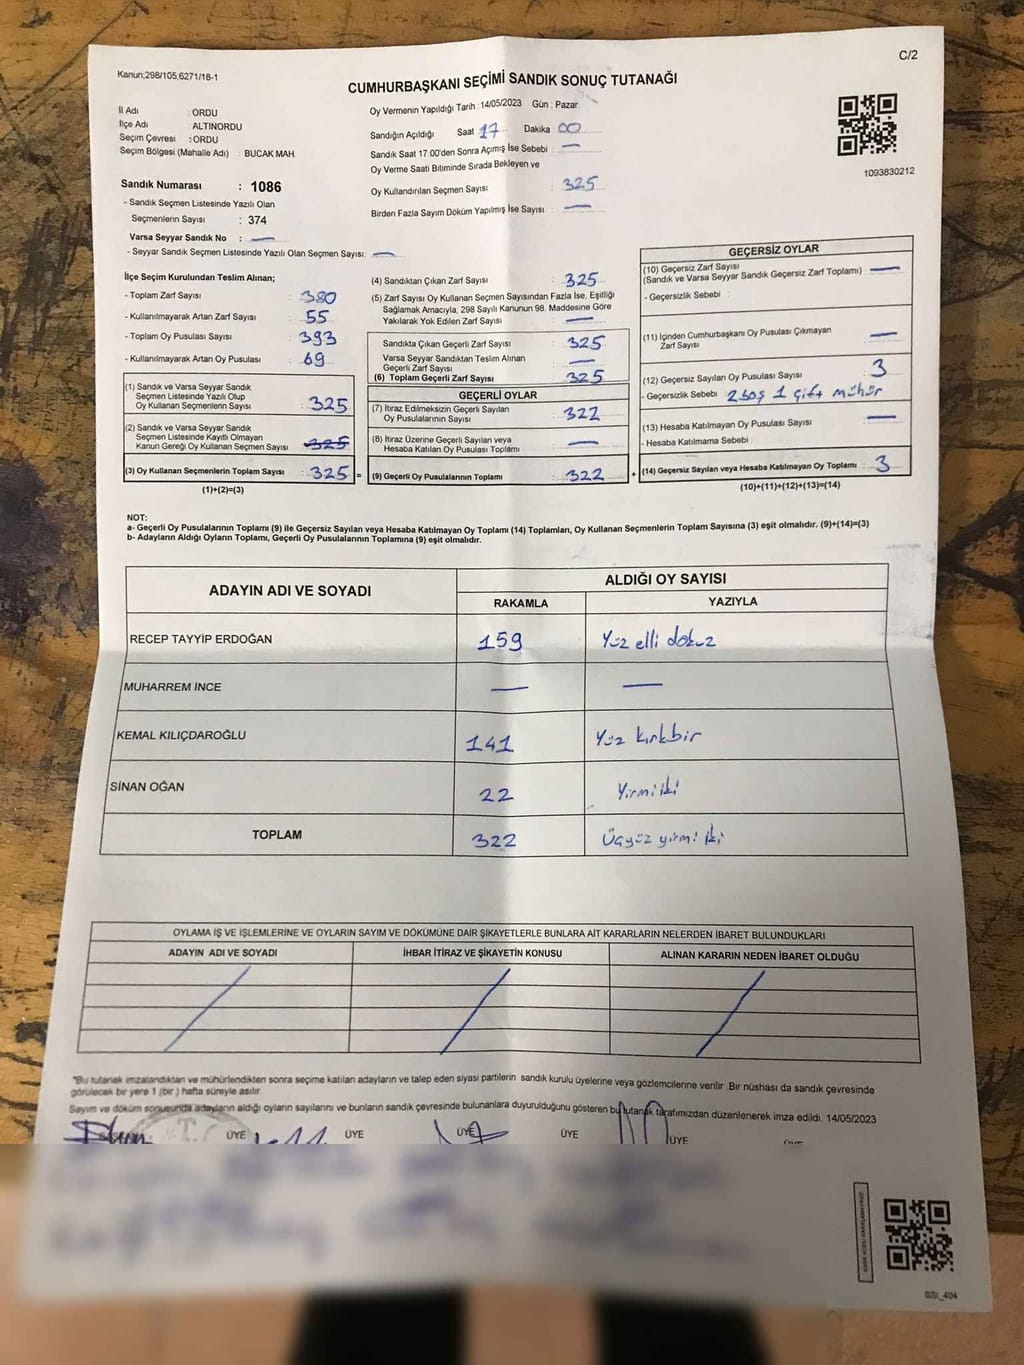 Kanun;298/105;6271/18-1
C/2
CUMHURBAŞKANI SEÇİMİ SANDIK SONUÇ TUTANAĞI
İl Adı : ORDU
İlçe Adı : ALTINORDU
Seçim Çevresi : ORDU
Seçim Bölgesi (Mahalle Adı) : BUCAK MAH.
Sandık Numarası : 1086
- Sandık Seçmen Listesinde Yazılı Olan
Seçmenlerin Sayısı : 374
Varsa Seyyar Sandık No : —
- Seyyar Sandık Seçmen Listesinde Yazılı Olan Seçmen Sayısı: —
Oy Vermenin Yapıldığı Tarih : 14/05/2023 Gün : Pazar
Sandığın Açıldığı Saat 17 Dakika : 00
Sandık Saat 17:00'den Sonra Açımış İse Sebebi : —
Oy Verme Saati Bitiminde Sırada Bekleyen ve
Oy Kullandırılan Seçmen Sayısı : 325
Birden Fazla Sayım Döküm Yapılmış İse Sayısı : —
1093830212
İlçe Seçim Kurulundan Teslim Alınan;
- Toplam Zarf Sayısı : 380
- Kullanılmayarak Artan Zarf Sayısı : 55
- Toplam Oy Pusulası Sayısı : 393
- Kullanılmayarak Artan Oy Pusulası : 69
(1) Sandık ve Varsa Seyyar Sandık
Seçmen Listesinde Yazılı Olup
Oy Kullanan Seçmenlerin Sayısı : 325
(2) Sandık ve Varsa Seyyar Sandık
Seçmen Listesinde Kayıtlı Olmayan
Kanun Gereği Oy Kullanan Seçmen Sayısı : 325
(3) Oy Kullanan Seçmenlerin Toplam Sayısı : 325 =
(1)+(2)=(3)
(4) Sandıktan Çıkan Zarf Sayısı : 325
(5) Zarf Sayısı Oy Kullanan Seçmen Sayısından Fazla İse, Eşitliği
Sağlamak Amacıyla, 298 Sayılı Kanunun 98. Maddesine Göre
Yakılarak Yok Edilen Zarf Sayısı : —
Sandıkta Çıkan Geçerli Zarf Sayısı : 325
Varsa Seyyar Sandıktan Teslim Alınan
Geçerli Zarf Sayısı : —
(6) Toplam Geçerli Zarf Sayısı : 325
GEÇERLİ OYLAR
(7) İtiraz Edilmeksizin Geçerli Sayılan
Oy Pusulalarının Sayısı : 322
(8) İtiraz Üzerine Geçerli Sayılan veya
Hesaba Katılan Oy Pusulası Toplamı : —
(9) Geçerli Oy Pusulalarının Toplamı : 322 +
GEÇERSİZ OYLAR
(10) Geçersiz Zarf Sayısı
(Sandık ve Varsa Seyyar Sandık Geçersiz Zarf Toplamı) : —
- Geçersizlik Sebebi :
(11) İçinden Cumhurbaşkanı Oy Pusulası Çıkmayan
Zarf Sayısı : —
(12) Geçersiz Sayılan Oy Pusulası Sayısı : 3
- Geçersizlik Sebebi : 2 boş 1 çift mühür
(13) Hesaba Katılmayan Oy Pusulası Sayısı : —
- Hesaba Katılmama Sebebi :
(14) Geçersiz Sayılan veya Hesaba Katılmayan Oy Toplamı : 3
(10)+(11)+(12)+(13)=(14)
NOT:
a- Geçerli Oy Pusulalarının Toplamı (9) ile Geçersiz Sayılan veya Hesaba Katılmayan Oy Toplamı (14) Toplamları, Oy Kullanan Seçmenlerin Toplam Sayısına (3) eşit olmalıdır. (9)+(14)=(3)
b- Adayların Aldığı Oyların Toplamı, Geçerli Oy Pusulalarının Toplamına (9) eşit olmalıdır.
ADAYIN ADI VE SOYADI
ALDIĞI OY SAYISI
RAKAMLA YAZIYLA
RECEP TAYYİP ERDOĞAN 159 Yüz elli dokuz
MUHARREM İNCE — —
KEMAL KILIÇDAROĞLU 141 Yüz kırkbir
SİNAN OĞAN 22 Yirmi iki
TOPLAM 322 Üçyüz yirmi iki
OYLAMA İŞ VE İŞLEMLERİNE VE OYLARIN SAYIM VE DÖKÜMÜNE DAİR ŞİKAYETLERLE BUNLARA AİT KARARLARIN NELERDEN İBARET BULUNDUKLARI
ADAYIN ADI VE SOYADI İHBAR İTİRAZ VE ŞİKAYETİN KONUSU ALINAN KARARIN NEDEN İBARET OLDUĞU
*Bu tutanak imzalandıktan ve mühürlendikten sonra seçime katılan adayların ve talep eden siyasi partilerin sandık kurulu üyelerine veya gözlemcilerine verilir. Bir nüshası da sandık çevresinde
görülecek bir yere 1 (bir) hafta süreyle asılır.
Sayım ve döküm sonucunda adayların aldığı oyların sayılarını ve bunların sandık çevresinde bulunanlara duyurulduğunu gösteren bu tutanak tarafımızdan düzenlenerek imza edildi. 14/05/2023
ÜYE ÜYE ÜYE ÜYE ÜYE
SSI_404